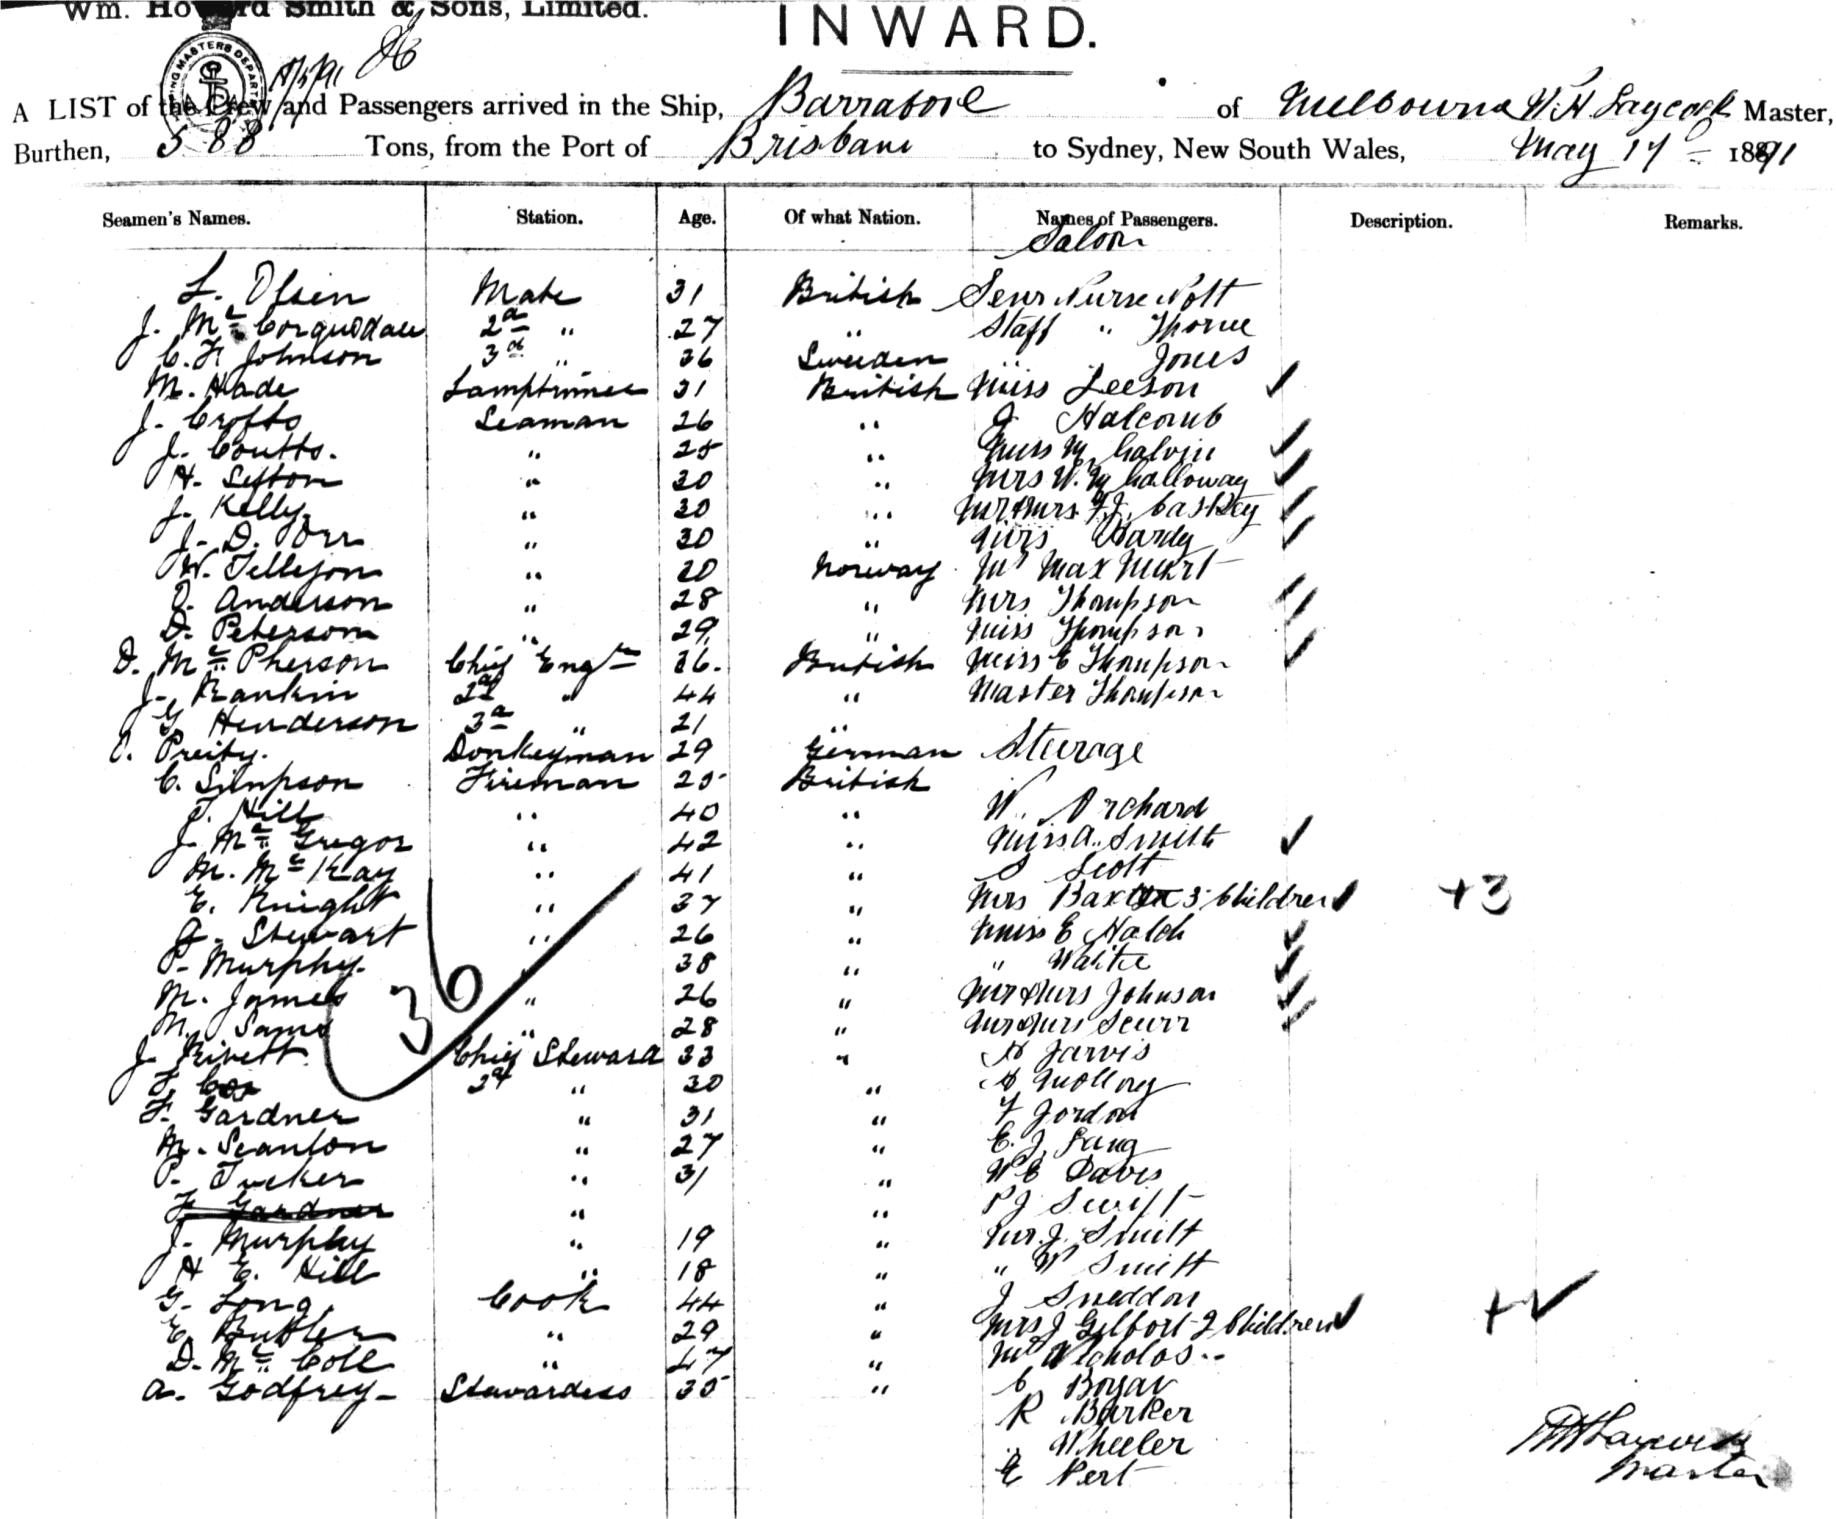 Wm. Howard Smith & Sons, Limited.
INWARD.
A LIST of the Crew and Passengers arrived in the Ship, Barrabool of Melbourne W. H. Laycock Master,
Burthen, 588 Tons, from the Port of Brisbane to Sydney, New South Wales, May 17th 1891
Seamen's Names. Station. Age. Of what Nation. Names of Passengers. Description. Remarks.
Saloon
L. Olsen Mate 31 British Senr Nurse Nott
J. Mc Corquodale 2d " 27 " Staff " Thorne
C. F. Johnson 3d " 36 Sweden " Jones
M. Hade Lamptrimmer 31 British Miss Leeson
J. Crofts Seaman 26 " J Halcomb
J. Coutts. " 25 " Miss M. Galvin
H. Sefton " 30 " Mrs W. M Galloway
J. Kelly. " 30 " Mr & Mrs F. J. Caskey
J. D. Orr " 30 " Mrs Hardy
W. Tellefson " 20 Norway Mr Max
J. Anderson " 28 " Mrs Thompson
D. Peterson " 29 " Miss Thompson
D. Mc Pherson Chief Engr 36. British Miss E Thompson
J. Rankin 2d " 44 " Master Thompson
G Henderson 3d " 21 "
Donkeyman 29 German Steerage
C. Simpson Fireman 25 British
T. Hill " 40 " W. Orchard
J. Mc Gregor " 42 " Miss A. Smith
M. Mc Kay " 41 " S Scott
E. Knight " 37 " Mrs Baxter 3 Children +3
J. Stewart " 26 " Miss E
P. Murphy. " 38 " "
M. James " 26 " Mr & Mrs Johnson
M. Sams " 28 " Mr & Mrs Scurr
36
J. Rivett Chief Steward 33 " A Jarvis
F. Cox 2d " 30 " A Molloy
F. Gardner " 31 " F Jordon
M. Scanlon " 27 " E. J. Lang
P. Tucker " 31 " W E Davis
F. Gardner " " P J Swift
J. Murphy " 19 " Mr. J. Smith
H E. Hill " 18 " " W Smith
G. Long. Cook 44 " J Sneddon
E. Butler " 29 " Mrs J Gilbort 2 Children +
D. Mc Coll " 47 " Mr Nicholas
A. Godfrey Stewardess 35 " C Bogar
R Barker
Wheeler
E Pert
W H Laycock
Master